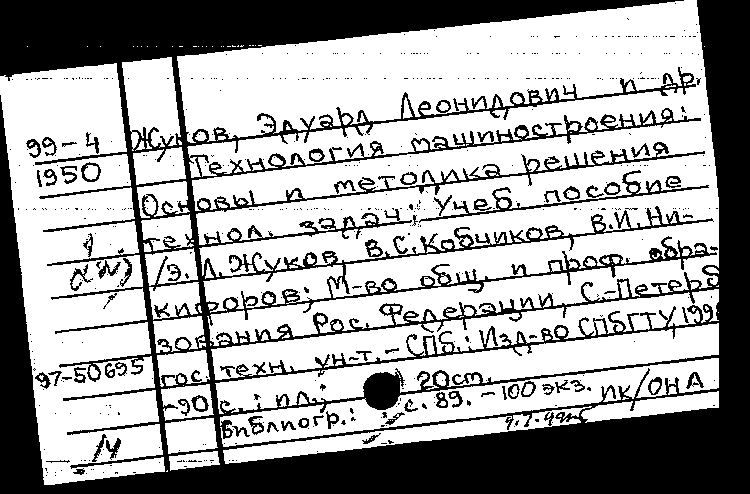 99-4 Жуков, Эдуард Леонидович и др.
1950 Технология машиностроения:
Основы и методика решения
технол. задач: Учеб. пособие
/Э. Л. Жуков, В.С. Кобчиков, В.И. Ни-
кифоров; М-во общ. и проф. обра-
зования Рос. Федерации, С.-Петерб
97-50695 гос. техн. ун-т. - СПб.: Изд-во СПбГТУ, 1998
-90 с.: ил.; 20см.
Библиогр.: с. 89. - 100 экз. ПК/ОНА